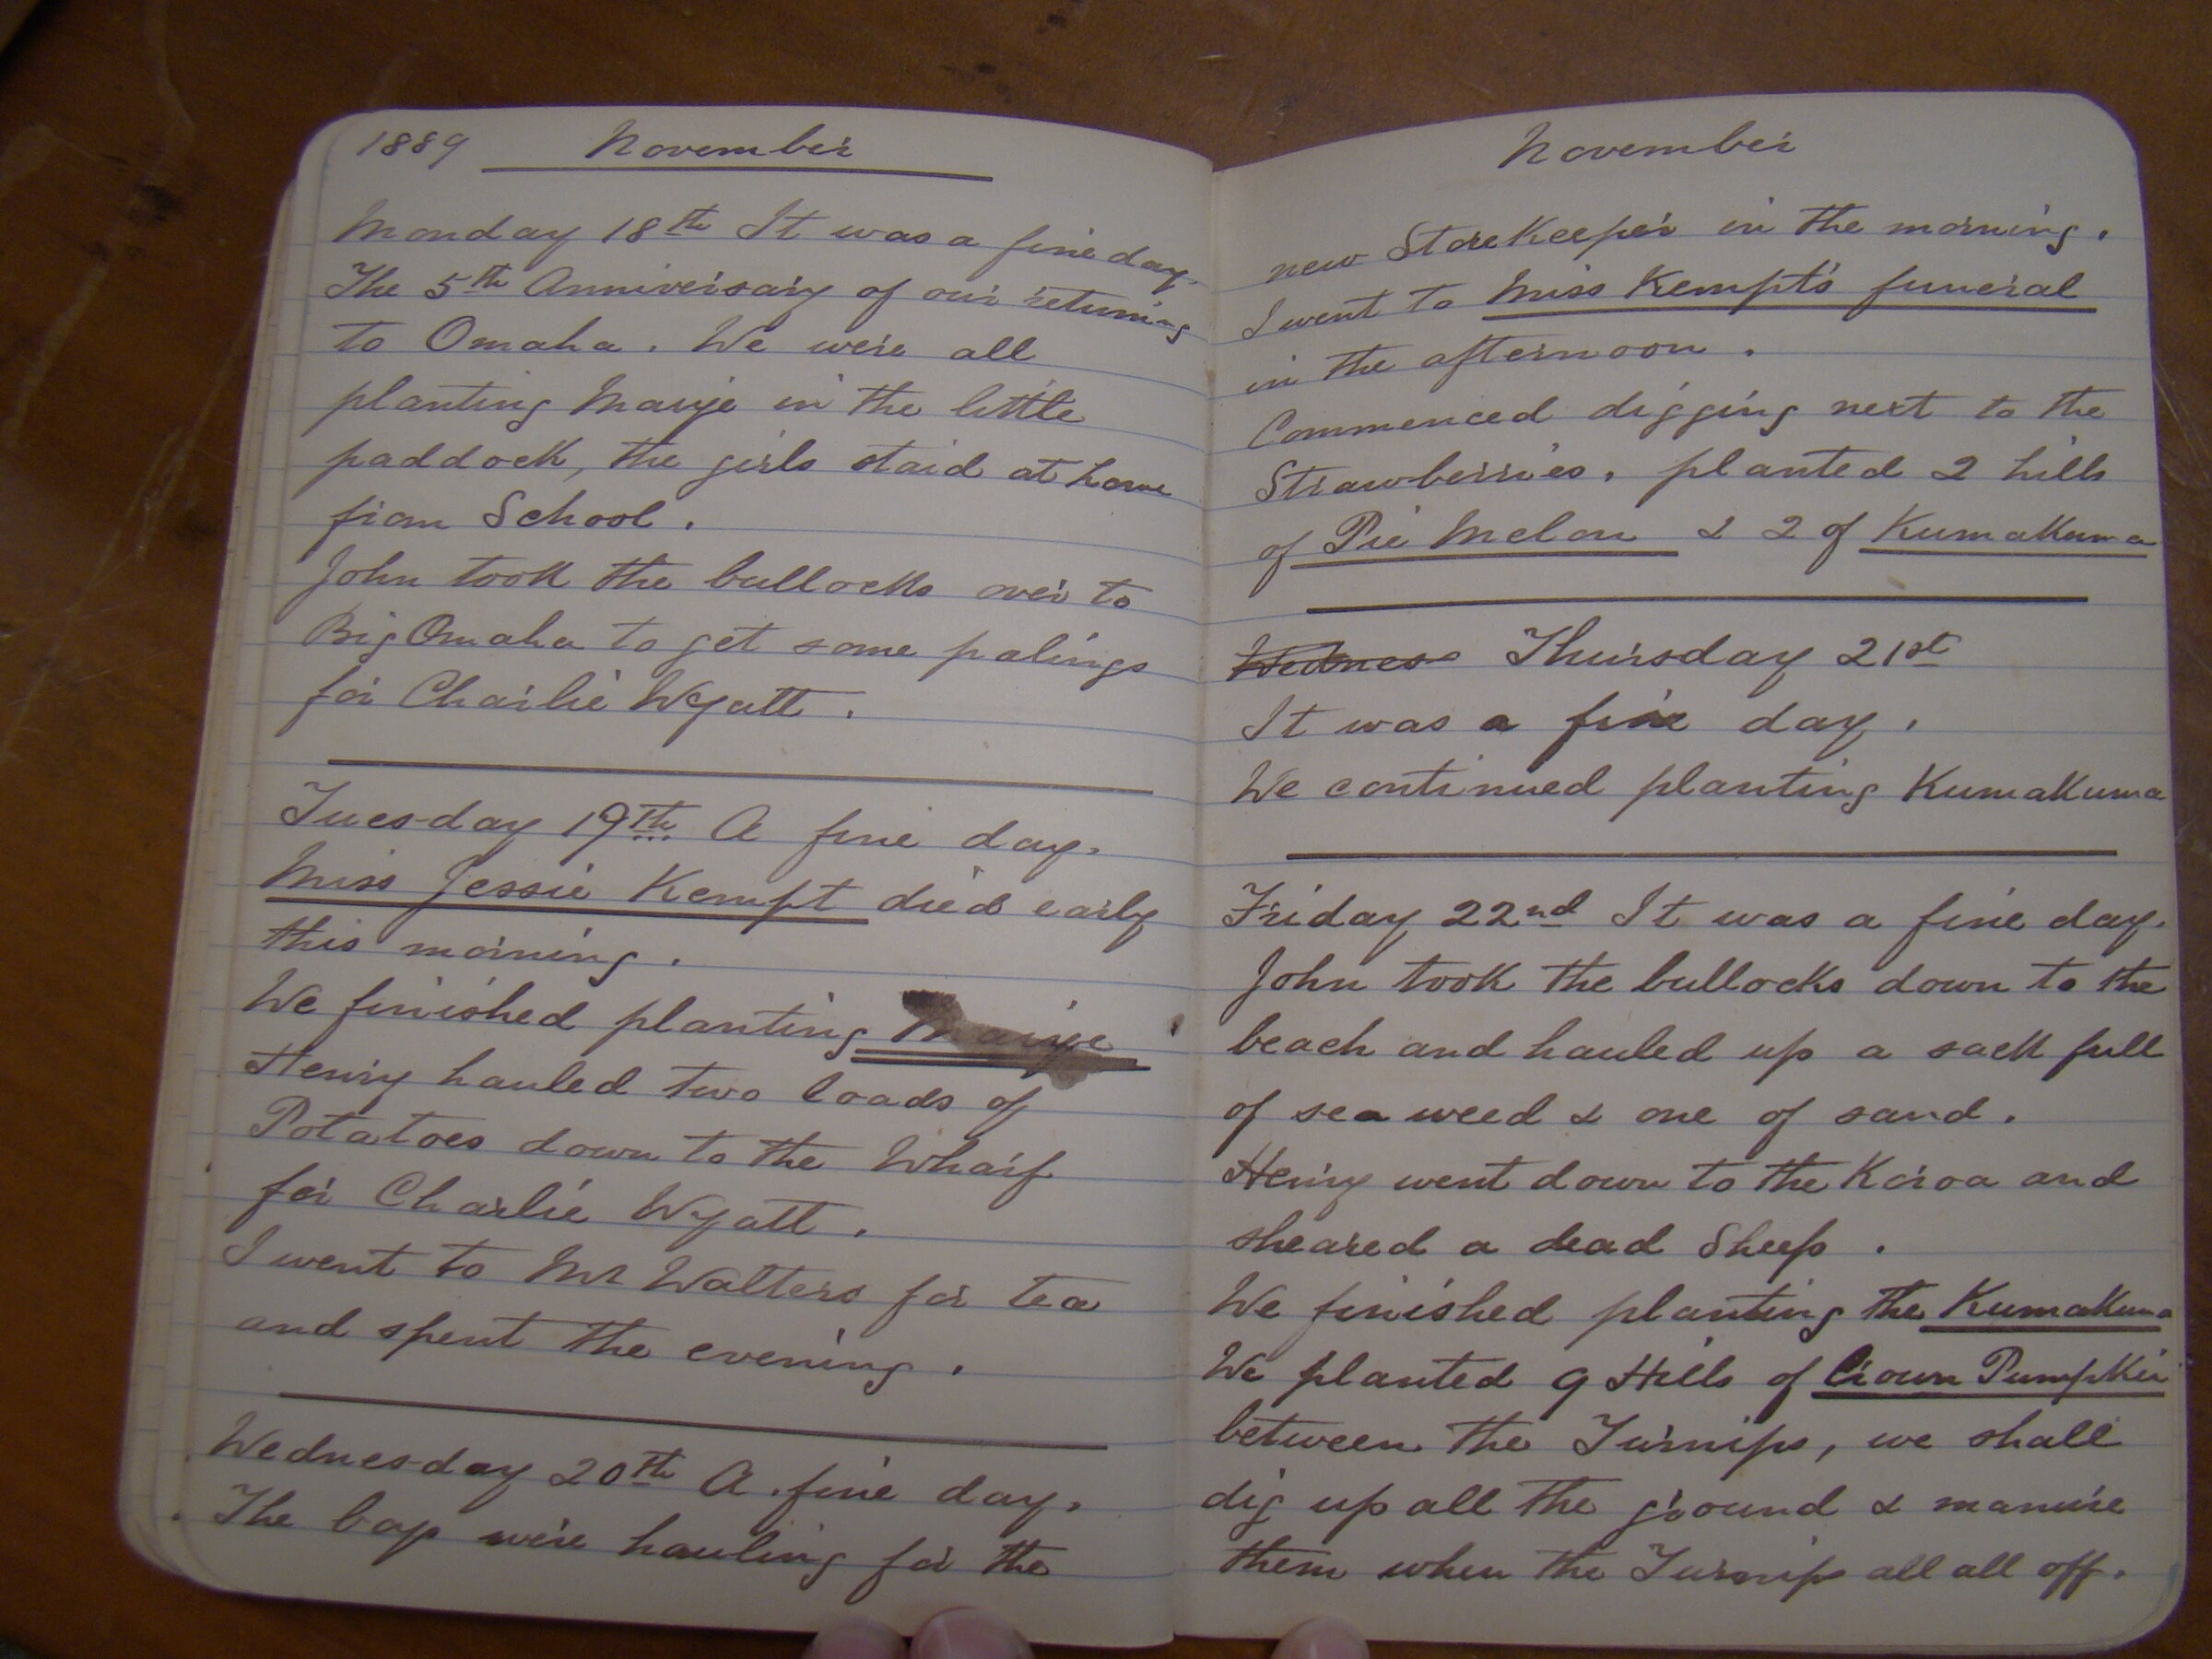 1889 November
Monday 18th It was a fine day.
The 5th Anniversary of our returning
to Omaha. We were all
planting Maize in the little
paddock, the girls staid at home
from School.
John took the bullocks over to
Big Omaha to get some palings
for Charlie Wyatt.
Tuesday 19th A fine day.
Miss Jessie Kempt died early
this morning.
We finished planting Maize
Henry hauled two loads of
Potatoes down to the Wharf
for Charlie Wyatt.
I went to Mr Walters for tea
and spent the evening.
Wednesday 20th A fine day.
The boys were hauling for the
November
new StoreKeeper in the morning.
I went to Miss Kempt's funeral
in the afternoon.
Commenced digging next to the
Strawberries. planted 2 hills
of Pie Melon & 2 of Kumakuma
Wednes Thursday 21st
It was a fine day.
We continued planting Kumakuma
Friday 22nd It was a fine day.
John took the bullocks down to the
beach and hauled up a sack full
of sea weed & one of sand.
Henry went down to the and
sheared a dead Sheep.
We finished planting the Kumakuma
We planted 9 Hills of Crown Pumpkin
between the Turnips, we shall
dig up all the ground & manure
them when the Turnips all all off.